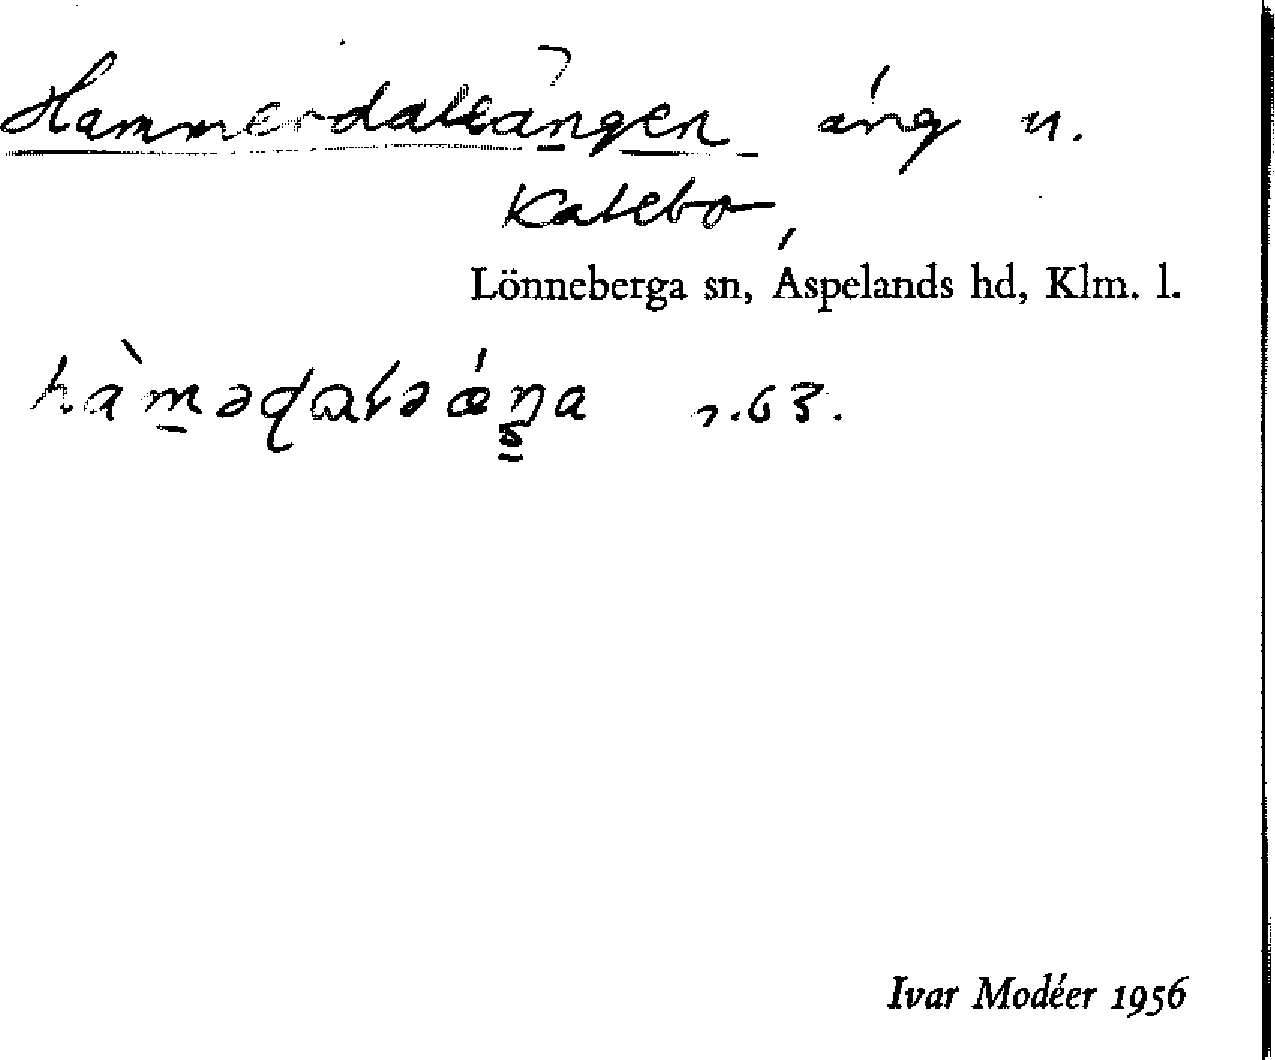 Hammerdaleängen äng u.
Kalebo,
Lönneberga sn, Aspelands hd, Klm. l.
r.63.
Ivar Modéer 1956